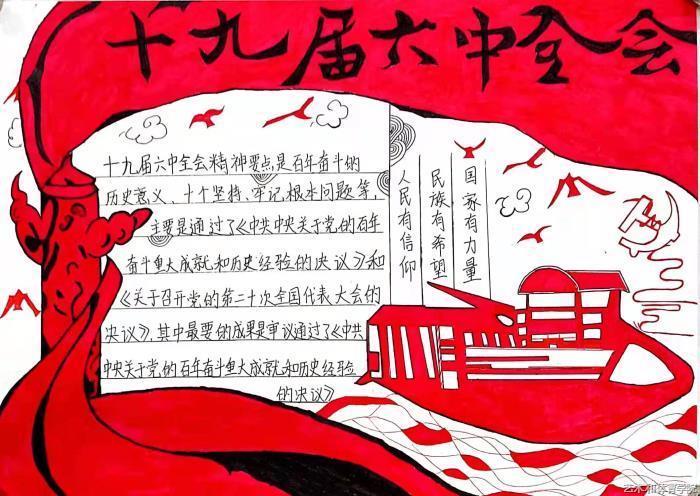 十九届六中全会
十九届六中全会精神要点是百年奋斗的
历史意义、十个坚持、牢记根本问题等,
主要是通过了《中共中央关于党的百年
奋斗重大成就和历史经验的决议》和
《关于召开党的第二十次全国代表大会的
决议》,其中最要的成果是审议通过了《中共
中央关于党的百年奋斗重大成就和历史经验
的决议》
国家有力量
民族有希望
人民有信仰
艺术和体育学院